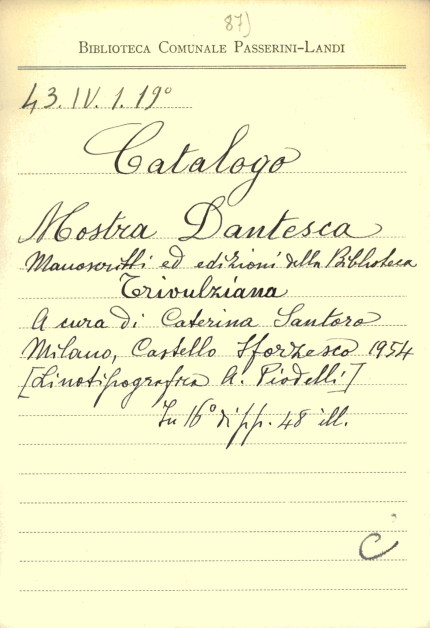 87)
BIBLIOTECA COMUNALE PASSERINI-LANDI
43. IV. 1. 19°
Catalogo
Mostra Dantesca
Manoscritti ed edizioni della Biblioteca
Trivulziana
A cura di Caterina Santoro
Milano, Castello Sforzesco 1954
[Linotipografica A. Piodelli]
In 16° di pp. 48 ill.
C